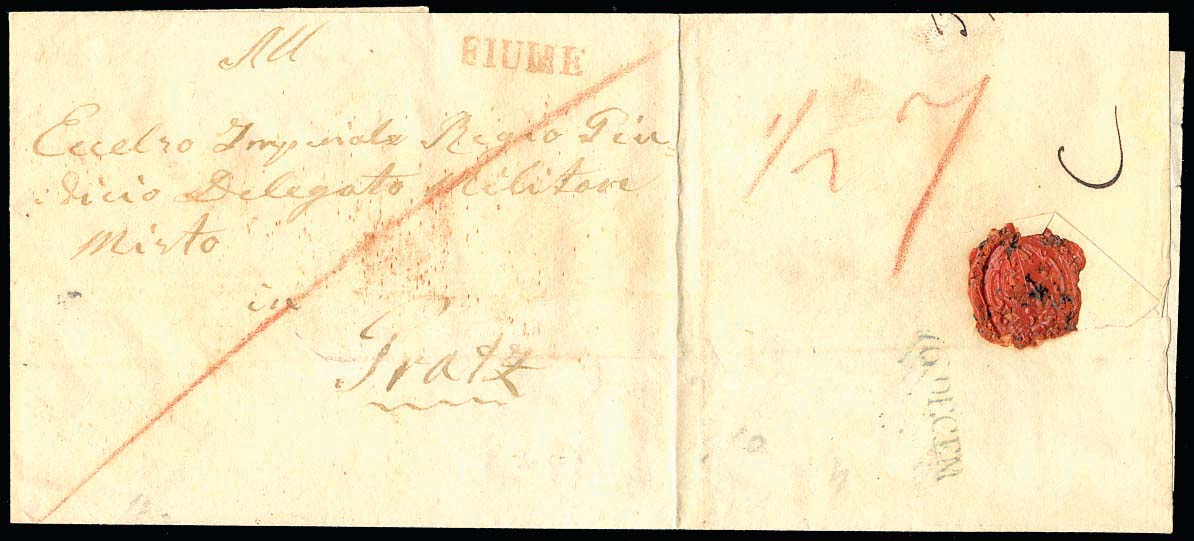 All
FIUME
Eccelso Imperiale Regio Giu-
dicio Delegato Militare
Misto
in
Gratz
1/2 7
16 DECEM